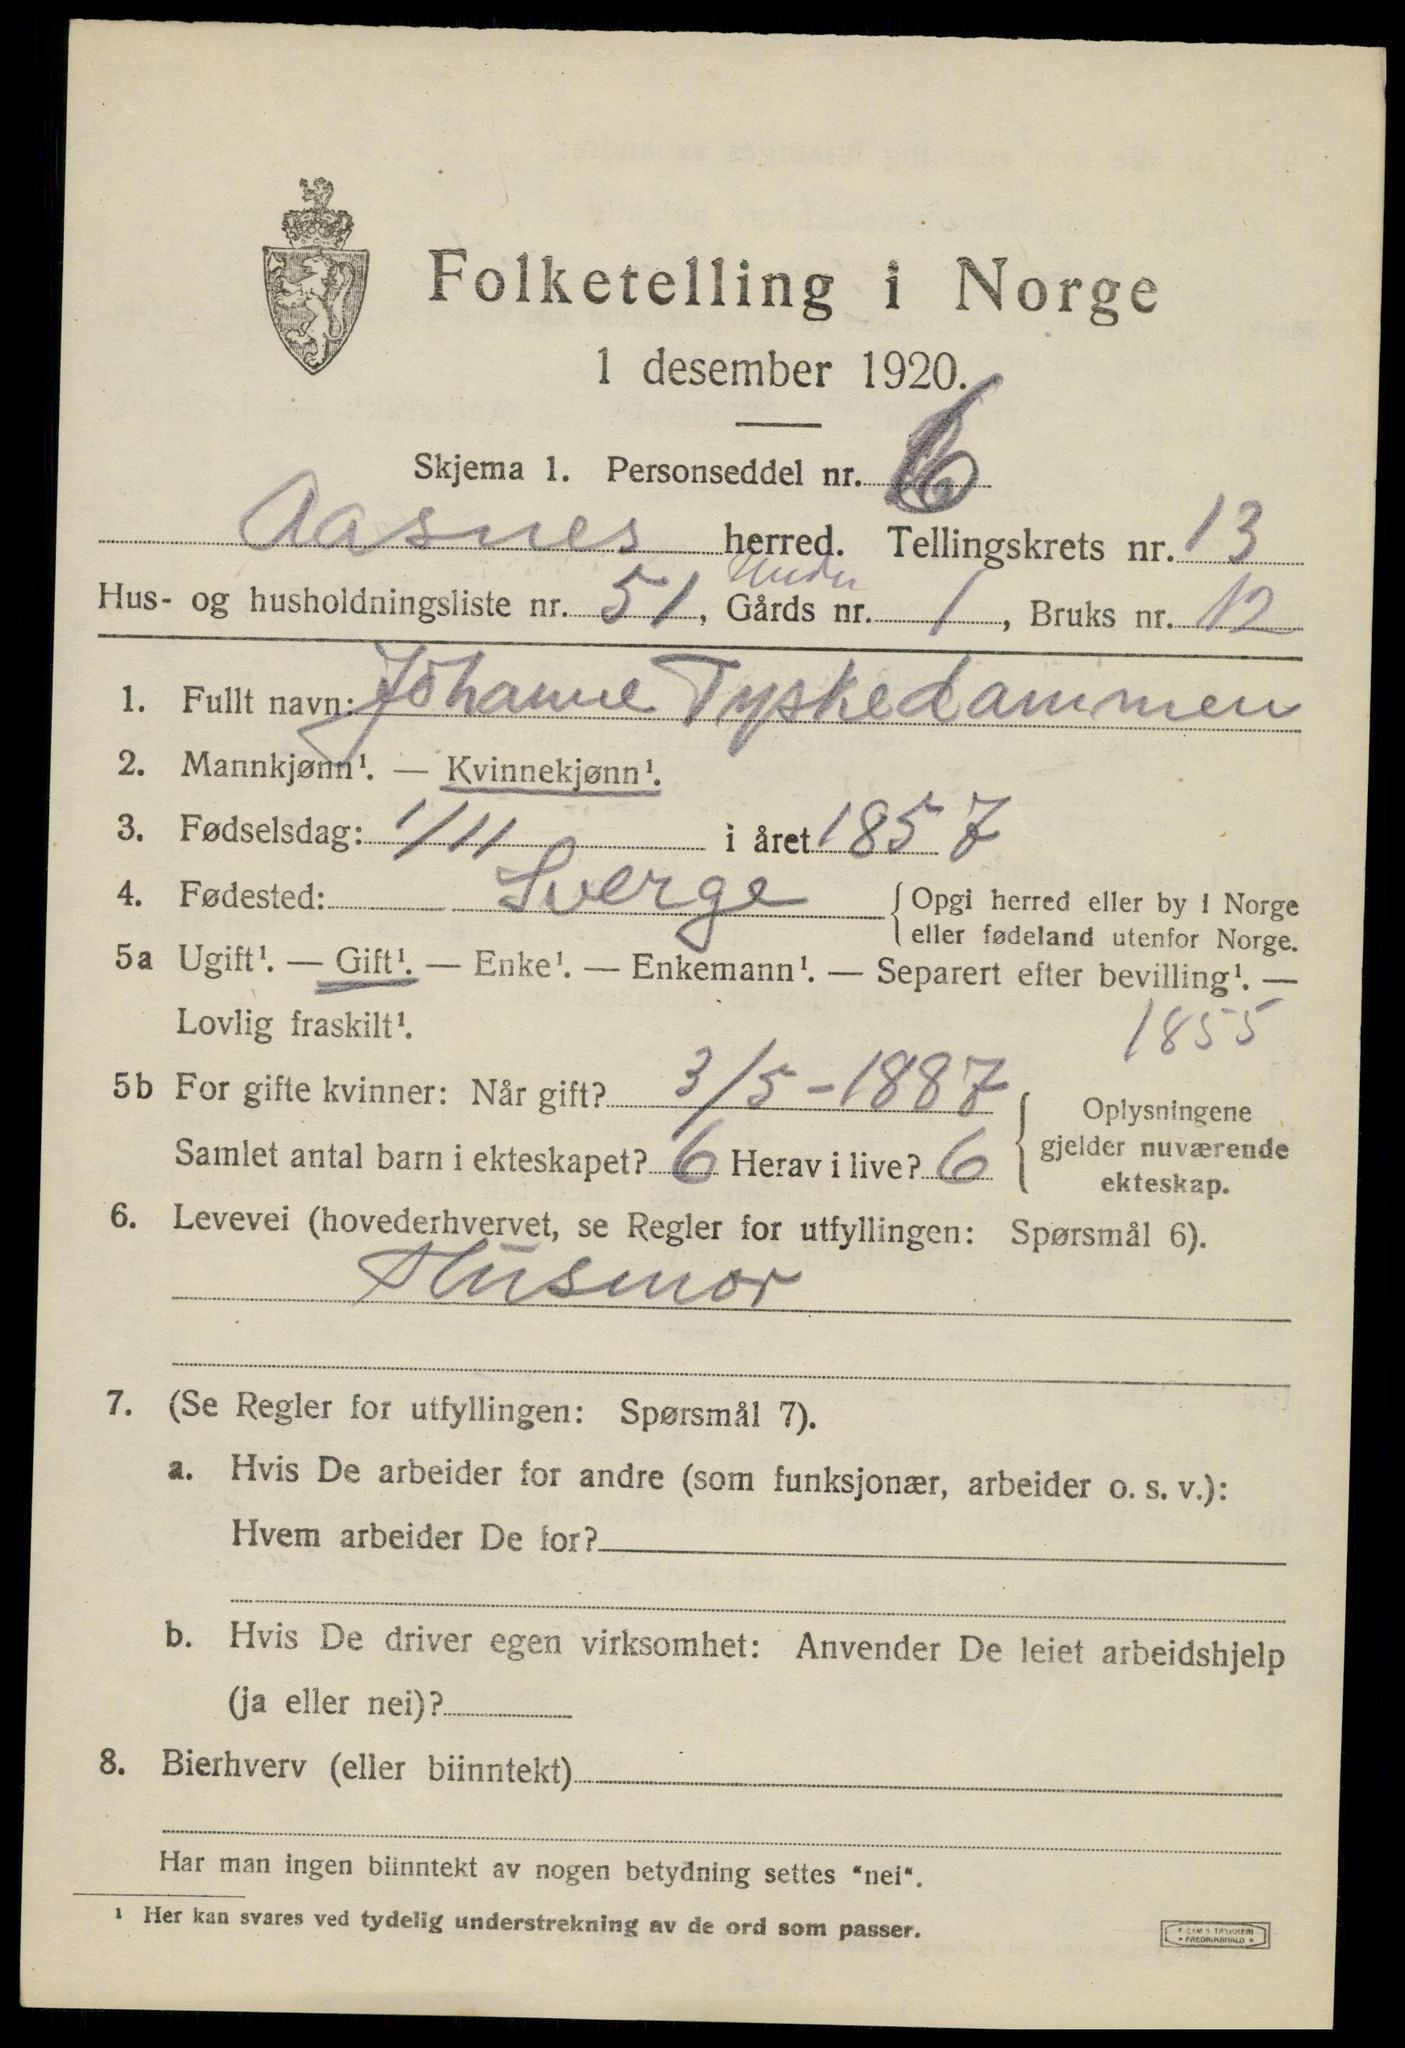 Folketelling i Norge
1 desember 1920.
Skjema 1. Personseddel nr. 6
Aasnes herred. Tellingskrets nr. 13
Under
Hus- og husholdningsliste nr. 51, Gårds nr. 1, Bruks nr. 12
1. Fullt navn: Johanne Tyskedammen
2. Mannkjønn¹. — Kvinnekjønn¹.
3. Fødselsdag: 1/11 i året 1857
4. Fødested: Sverge { Opgi herred eller by i Norge
eller fødeland utenfor Norge.
5a Ugift¹. — Gift¹. — Enke¹. — Enkemann¹. — Separert efter bevilling¹. —
Lovlig fraskilt¹.
1855
5b For gifte kvinner: Når gift? 3/5-1887
Samlet antal barn i ekteskapet? 6 Herav i live? 6
{ Oplysningene
gjelder nuværende
ekteskap.
6. Levevei (hovederhvervet, se Regler for utfyllingen: Spørsmål 6).
Husmor
7. (Se Regler for utfyllingen: Spørsmål 7).
a. Hvis De arbeider for andre (som funksjonær, arbeider o. s. v.):
Hvem arbeider De for?
b. Hvis De driver egen virksomhet: Anvender De leiet arbeidshjelp
(ja eller nei)?
8. Bierhverv (eller biinntekt)
Har man ingen biinntekt av nogen betydning settes "nei".
¹ Her kan svares ved tydelig understrekning av de ord som passer.
TRYKKERI
FREDRIKSHALD